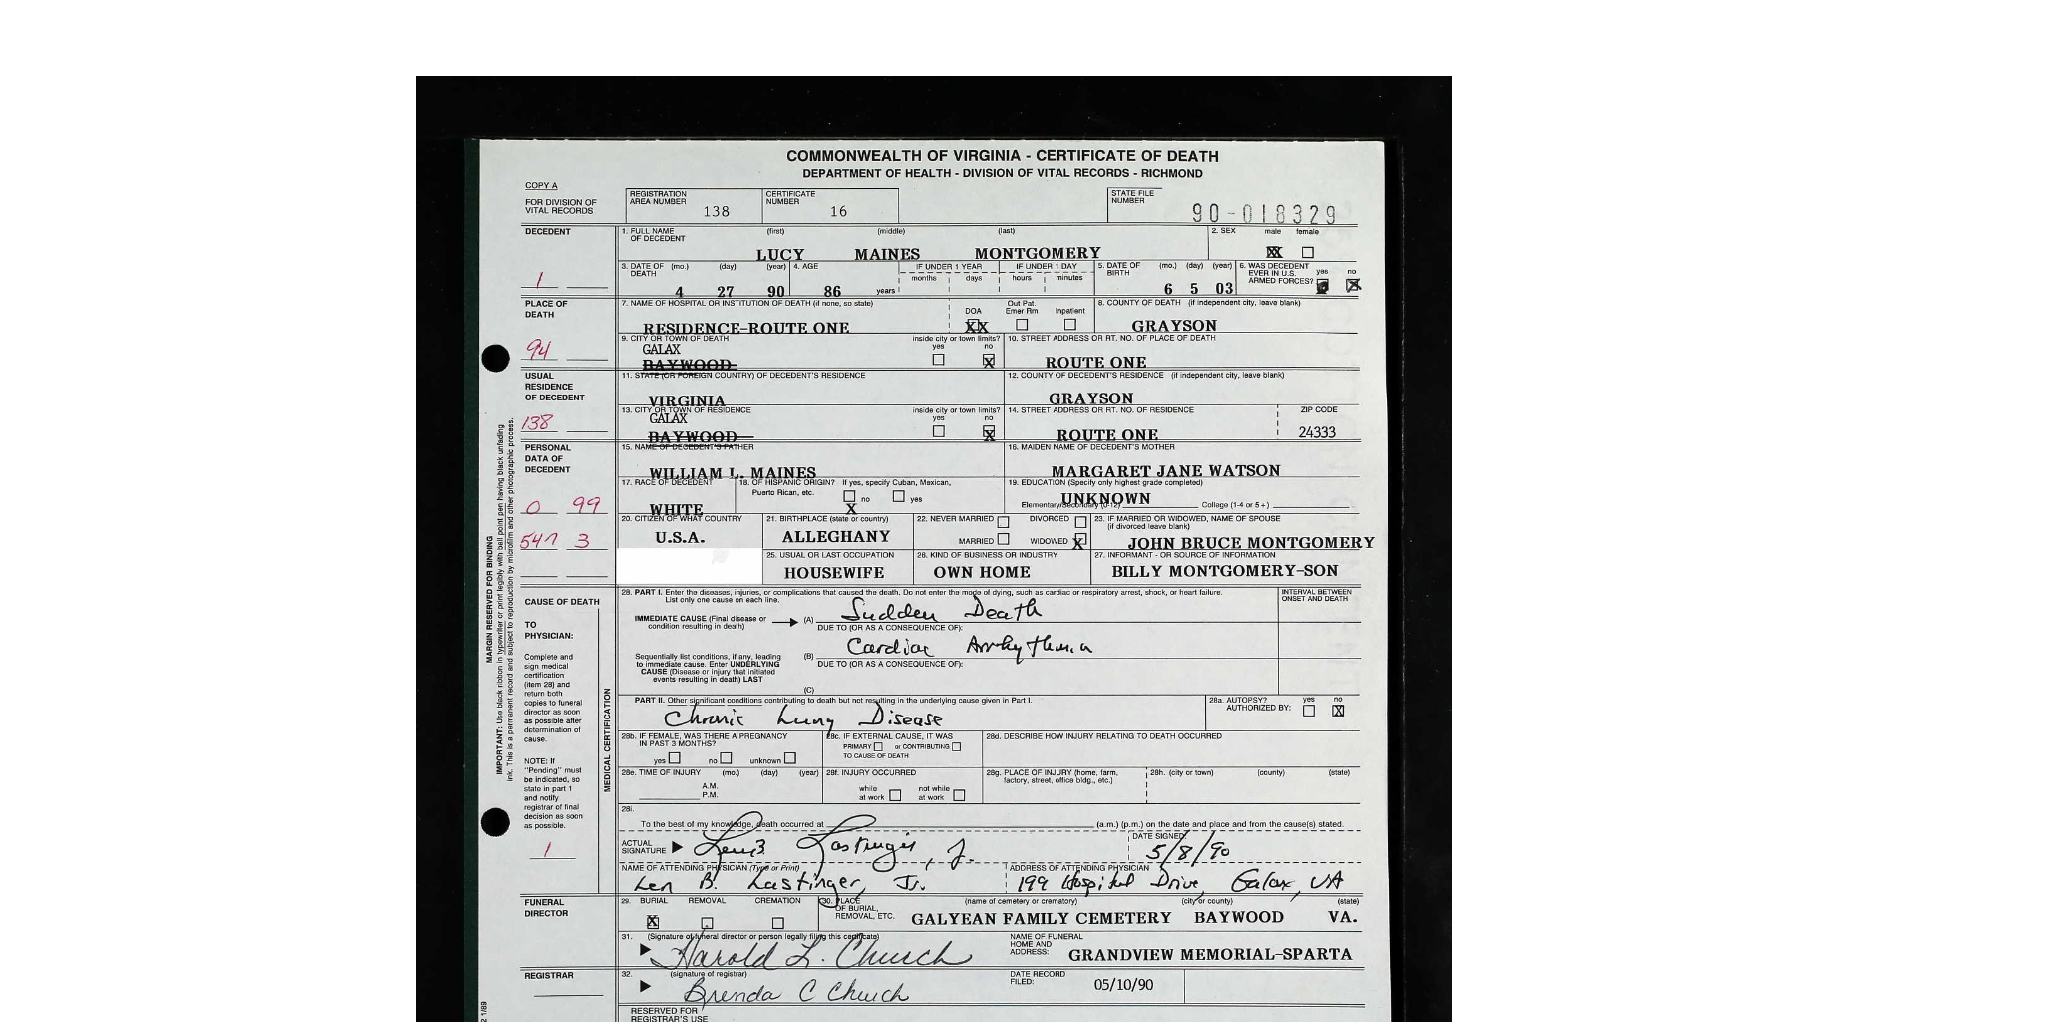 COMMONWEALTH OF VIRGINIA - CERTIFICATE OF DEATH
DEPARTMENT OF HEALTH - DIVISION OF VITAL RECORDS - RICHMOND
COPY A
FOR DIVISION OF VITAL RECORDS
REGISTRATION AREA NUMBER 138
CERTIFICATE NUMBER 16
STATE FILE NUMBER 90-018329
DECEDENT
1
1. FULL NAME OF DECEDENT (first) (middle) (last)
LUCY MAINES MONTGOMERY
2. SEX male female
XX
3. DATE OF DEATH (mo.) (day) (year)
4 27 90
4. AGE
86 years
IF UNDER 1 YEAR months days
IF UNDER 1 DAY hours minutes
5. DATE OF BIRTH (mo.) (day) (year)
6 5 03
6. WAS DECEDENT EVER IN U.S. ARMED FORCES? yes no
X
PLACE OF DEATH
94
7. NAME OF HOSPITAL OR INSTITUTION OF DEATH (if none, so state)
RESIDENCE-ROUTE ONE
DOA Out Pat. Emer Rm Inpatient
XX
8. COUNTY OF DEATH (if independent city, leave blank)
GRAYSON
9. CITY OR TOWN OF DEATH
GALAX
BAYWOOD
inside city or town limits? yes no
X
10. STREET ADDRESS OR RT. NO. OF PLACE OF DEATH
ROUTE ONE
USUAL RESIDENCE OF DECEDENT
138
11. STATE (OR FOREIGN COUNTRY) OF DECEDENT'S RESIDENCE
VIRGINIA
12. COUNTY OF DECEDENT'S RESIDENCE (if independent city, leave blank)
GRAYSON
13. CITY OR TOWN OF RESIDENCE
GALAX
BAYWOOD
inside city or town limits? yes no
X
14. STREET ADDRESS OR RT. NO. OF RESIDENCE
ROUTE ONE
ZIP CODE
24333
PERSONAL DATA OF DECEDENT
0 99
547 3
15. NAME OF DECEDENT'S FATHER
WILLIAM L. MAINES
16. MAIDEN NAME OF DECEDENT'S MOTHER
MARGARET JANE WATSON
17. RACE OF DECEDENT
WHITE
18. OF HISPANIC ORIGIN? If yes, specify Cuban, Mexican, Puerto Rican, etc. no yes
X
19. EDUCATION (Specify only highest grade completed)
UNKNOWN
Elementary/Secondary (0-12) College (1-4 or 5+)
20. CITIZEN OF WHAT COUNTRY
U.S.A.
21. BIRTHPLACE (state or country)
ALLEGHANY
22. NEVER MARRIED DIVORCED
MARRIED WIDOWED X
23. IF MARRIED OR WIDOWED, NAME OF SPOUSE (if divorced leave blank)
JOHN BRUCE MONTGOMERY
25. USUAL OR LAST OCCUPATION
HOUSEWIFE
26. KIND OF BUSINESS OR INDUSTRY
OWN HOME
27. INFORMANT - OR SOURCE OF INFORMATION
BILLY MONTGOMERY-SON
CAUSE OF DEATH
TO PHYSICIAN:
Complete and sign medical certification (item 28) and return both copies to funeral director as soon as possible after determination of cause.
NOTE: If "Pending" must be indicated, so state in part 1 and notify registrar of final decision as soon as possible.
1
MEDICAL CERTIFICATION
MARGIN RESERVED FOR BINDING
IMPORTANT: Use black ribbon in typewriter or print legibly with ball point pen having black unfading
ink. This is a permanent record and subject to reproduction by microfilm and other photographic process.
28. PART I. Enter the diseases, injuries, or complications that caused the death. Do not enter the mode of dying, such as cardiac or respiratory arrest, shock, or heart failure.
List only one cause on each line.
INTERVAL BETWEEN ONSET AND DEATH
IMMEDIATE CAUSE (Final disease or condition resulting in death)
(A) Sudden Death
DUE TO (OR AS A CONSEQUENCE OF):
(B) Cardiac Arrhythmia
DUE TO (OR AS A CONSEQUENCE OF):
Sequentially list conditions, if any, leading to immediate cause. Enter UNDERLYING CAUSE (Disease or injury that initiated events resulting in death) LAST
(C)
PART II. Other significant conditions contributing to death but not resulting in the underlying cause given in Part I.
Chronic Lung Disease
28a. AUTOPSY? AUTHORIZED BY: yes no
X
28b. IF FEMALE, WAS THERE A PREGNANCY IN PAST 3 MONTHS?
yes no unknown
28c. IF EXTERNAL CAUSE, IT WAS
PRIMARY or CONTRIBUTING
TO CAUSE OF DEATH
28d. DESCRIBE HOW INJURY RELATING TO DEATH OCCURRED
28e. TIME OF INJURY (mo.) (day) (year)
A.M.
P.M.
28f. INJURY OCCURRED
while at work not while at work
28g. PLACE OF INJURY (home, farm, factory, street, office bldg., etc.)
28h. (city or town) (county) (state)
28i.
To the best of my knowledge, death occurred at (a.m.) (p.m.) on the date and place and from the cause(s) stated.
ACTUAL SIGNATURE Len B. Lastinger, Jr.
DATE SIGNED:
5/8/90
NAME OF ATTENDING PHYSICIAN (Type or Print)
Len B. Lastinger, Jr.
ADDRESS OF ATTENDING PHYSICIAN
199 Hospital Drive, Galax, VA
FUNERAL DIRECTOR
29. BURIAL REMOVAL CREMATION
X
30. PLACE OF BURIAL, REMOVAL, ETC. (name of cemetery or crematory) (city or county) (state)
GALYEAN FAMILY CEMETERY BAYWOOD VA.
31. (Signature of funeral director or person legally filing this certificate)
Harold L. Church
NAME OF FUNERAL HOME AND ADDRESS:
GRANDVIEW MEMORIAL-SPARTA
REGISTRAR
32. (signature of registrar)
Brenda C Church
DATE RECORD FILED:
05/10/90
RESERVED FOR REGISTRAR'S USE
2 1/89